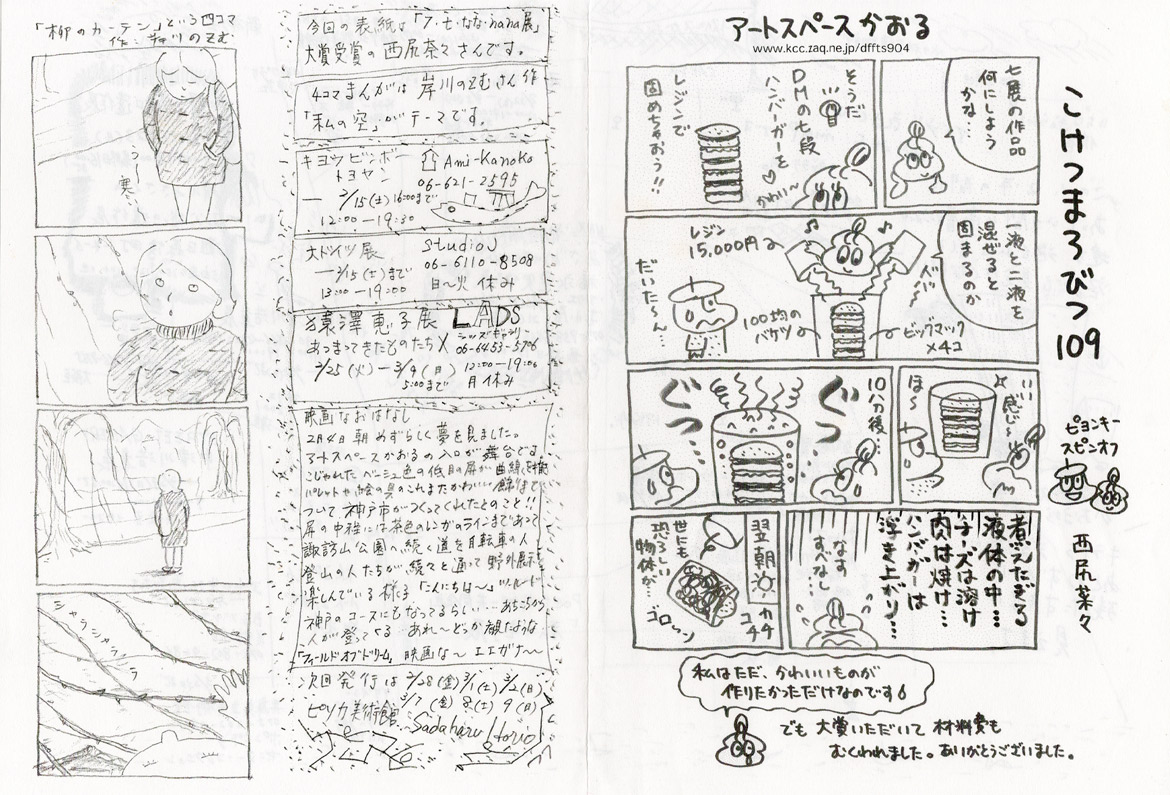 「柳のカーテン」という四コマ
寒い
シャラ
シャラ
ラ
今回の表紙は「ア・七・なな・nana展」
大賞受賞の西尻菜々さんです。
4コマまんがは岸川のぞむさん作
「私の空」がテーマです。
キヨウビンボー
トヨヤン
Ami-Kanoko
06-621-2595
3/15(土)16:00まで
12:00ー19:30
大ドイツ展
studioJ
3/15(土)まで
06-6110-8508
13:00ー19:00
日〜火 休み
猿澤恵子展 LADS
あつまってきたものたちX
06-6453-5706
2/25(火)ー3/9(日)
12:00ー19:00
5:00まで
月休み
映画なおはなし
2月4日朝めずらしく夢を見ました。
アートスペースかおるの入口が舞台です
こじゃれたベージュ色の低目の扉が曲線を描き
パレットや絵の具のこれまたかわいい飾りまで
ついて神戸市がつくってくれたとのこと!!
扉の中程には茶色のレンガのラインまであって
諏訪山公園の続く道を自転車の人
登山の人たちが続々と通って野外展示を
楽しんでいる様子「こんにちは〜」
神戸のコースにもなってるらしい…あちこちから
人が登ってくる あれ〜どっか観たような
「フィールドオブドリーム」映画な〜 エエガナ〜
次回発行は2/28(金)3/1(土)3/2(日)
3/7(金)8(土)9(日)
ピリカ美術館
Sadaharu Horio
アートスペースかおる
www.kcc.zaq.ne.jp/dffts904
こけつまろびつ 109
ピョンキー
スピンオフ
西尻菜々
七展の作品
何にしよう
かな…
そうだ
DMの七段
ハンバーガーを
かわい〜
レジンで
固めちゃおう!!
一液と二液を
混ぜると
固まるのか
レジン
15,000円
100均の
バケツ
ビックマック
×4コ
だいた〜ん
いい
感じ〜
ほ〜
10分後…
ぐつ
ぐつ
煮えたぎる
液体の中…
チーズは溶け
肉は焼け…
ハンバーガーは
浮き上がり…
なす
すべなし…
翌朝
カチ
コチ
世にも
恐ろしい
物体が…
ゴローン
私はただ、かわいいものが
作りたかっただけなのです
でも大賞いただいて材料費も
むくわれました。ありがとうございました。